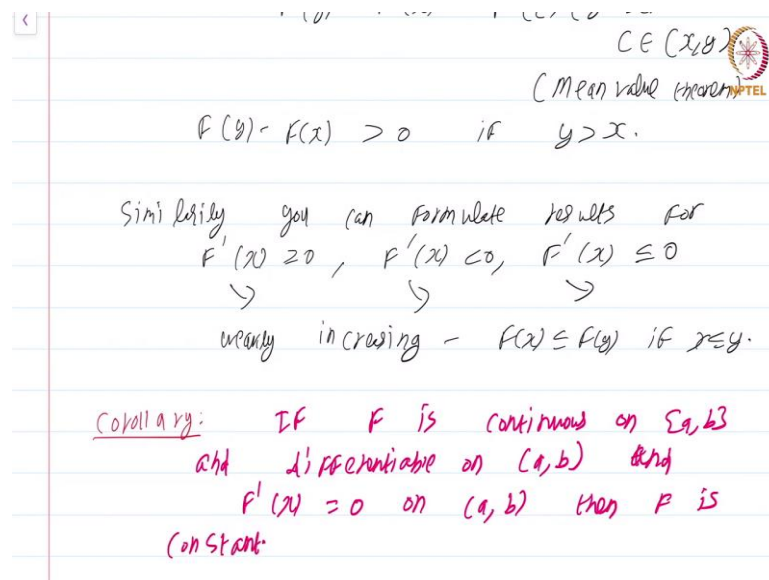 C ∈ (x,y)
(Mean value theorem)
NPTEL
F(y) - F(x) > 0 if y > x.
Similarily you can formulate results for
F'(x) ≥ 0, F'(x) < 0, F'(x) ≤ 0
weakly increasing - F(x) ≤ F(y) if x ≤ y.
Corollary: IF F is continuous on [a,b]
and differentiable on (a,b) and
F'(x) = 0 on (a,b) then F is
constant.